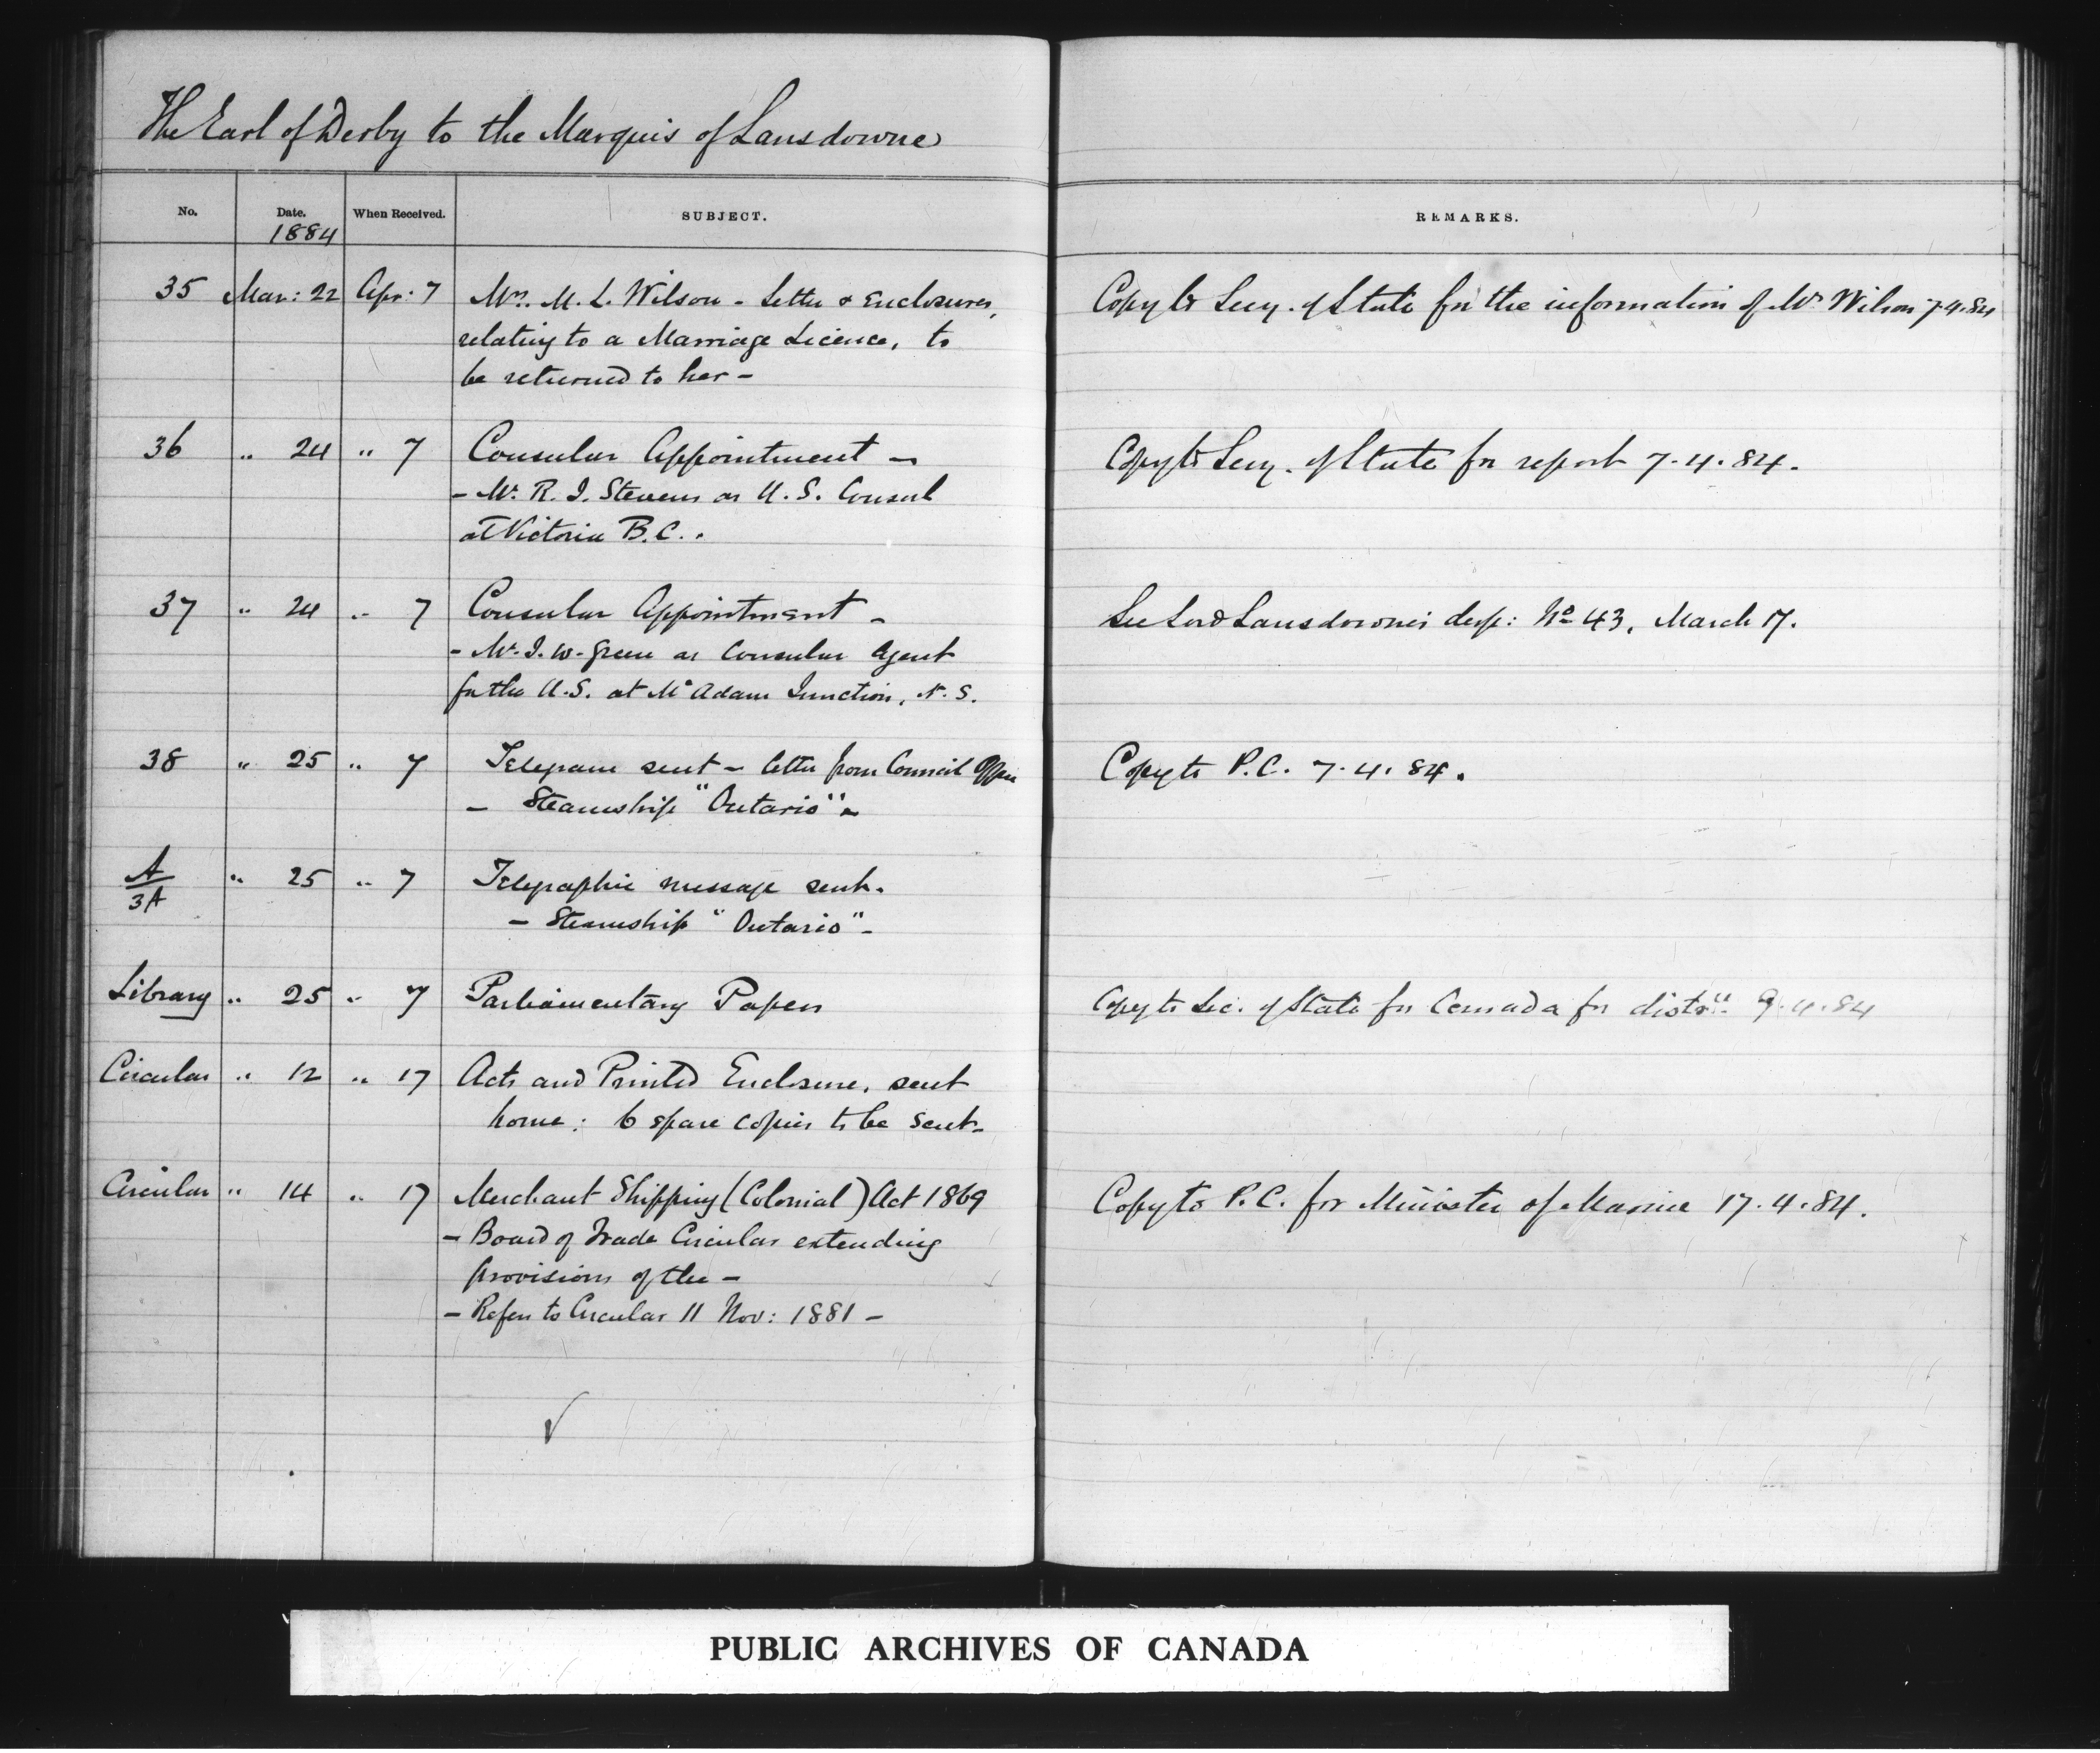 The Earl of Derby to the Marquis of Lansdowne
No. Date. When Received. SUBJECT. REMARKS.
1884
35 Mar: 22 Apr: 7 Mrs. M. L. Wilson - Letter & Enclosures, Copy to Secy. of State for the information of Mrs Wilson 7.4.84
relating to a Marriage Licence, to
be returned to her -
36 " 24 " 7 Consular Appointment - Copy to Secy. of State for report 7.4.84.
- Mr. R. J. Stevens as U.S. Consul
at Victoria B.C..
37 " 24 " 7 Consular Appointment - See Lord Lansdowne's desp: No 43, March 17.
- Mr. J. W. Green as Consular Agent
for the U.S. at McAdam Junction, N.S.
38 " 25 " 7 Telegram sent - letter from Council Office Copy to P.C. 7.4.84.
- Steamship "Ontario" -
A " 25 " 7 Telegraphic message sent.
3A
- Steamship "Ontario" -
Library " 25 " 7 Parliamentary Papers Copy to Sec. of State for Canada for distrn. 9.4.84
Circular " 12 " 17 Acts and Printed Enclosure, sent
home: 6 spare copies to be sent -
Circular " 14 " 17 Merchant Shipping (Colonial) Act 1869 Copy to P.C. for Minister of Marine 17.4.84.
- Board of Trade Circular extending
provisions of the -
- Refers to Circular 11 Nov: 1881 -
PUBLIC ARCHIVES OF CANADA